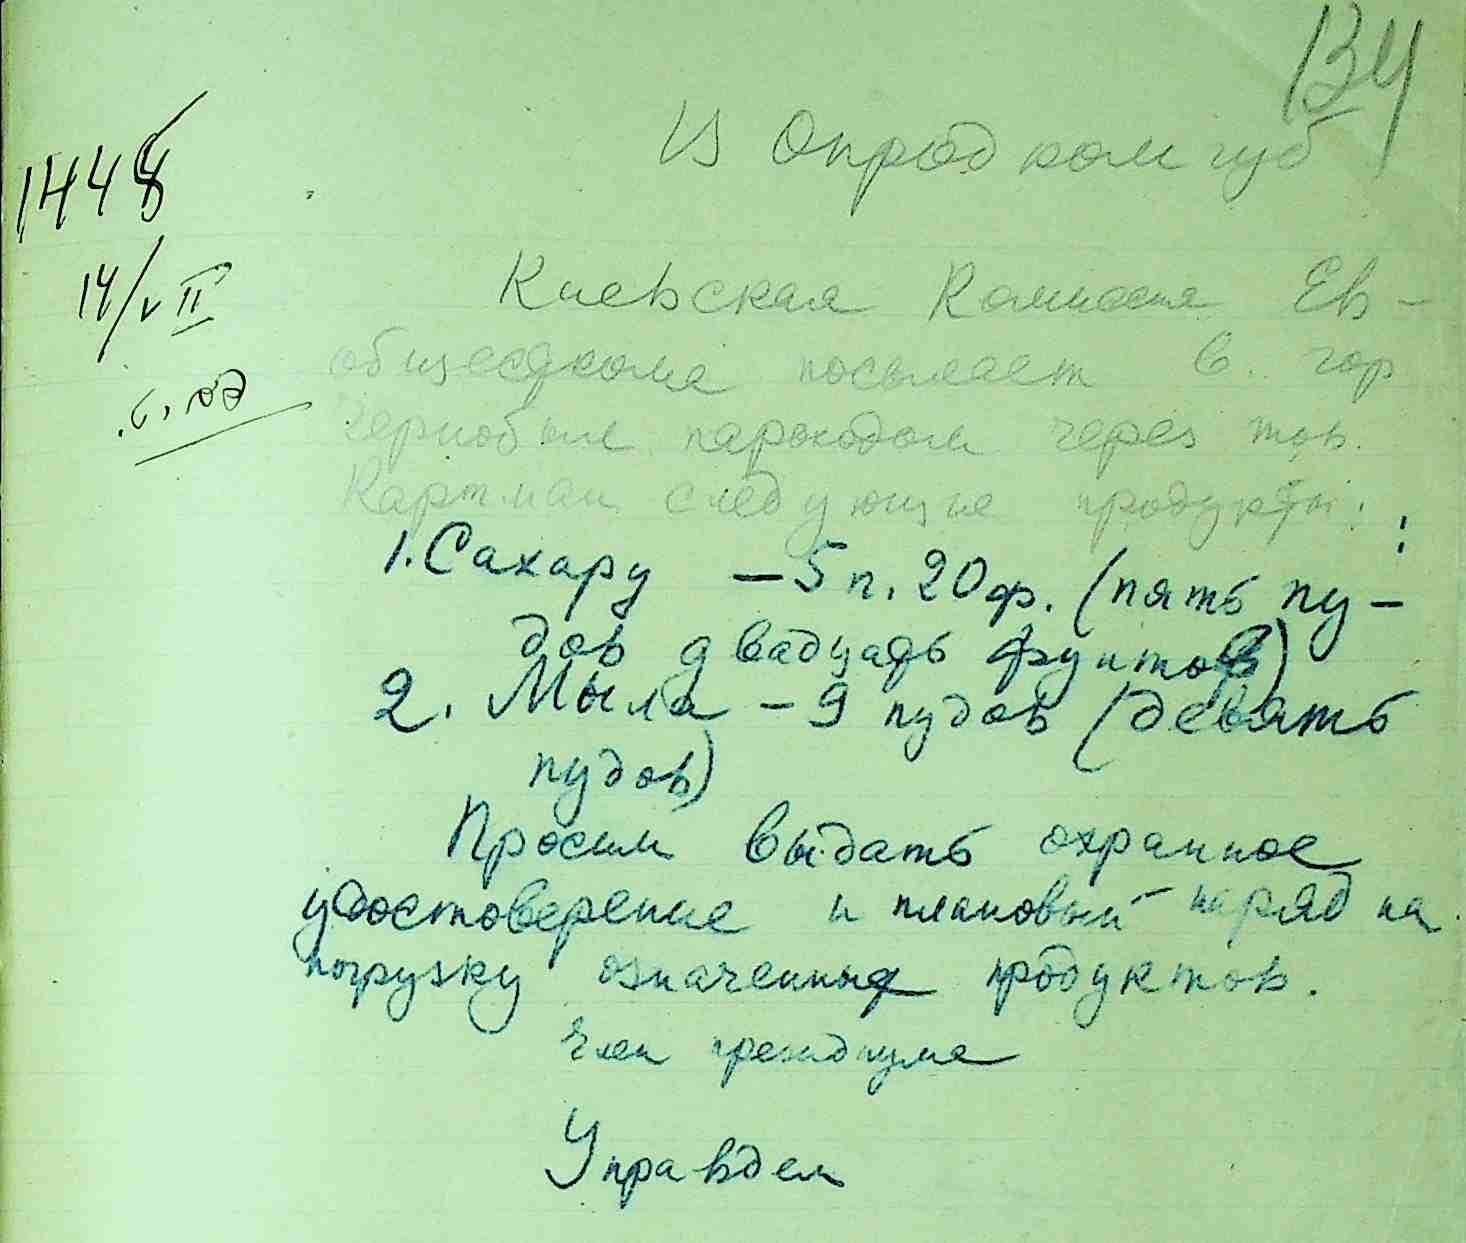 134
В Опродкомгуб
1448
14/VII
Киевская Комиссия Ев-
обществкома посылает в гор
Чернобыль пароходом через тов.
Картман следующие продукты:
1. Сахару – 5 п. 20 ф. (пять пу-
дов двадцадь фунтов)
2. Мыла – 9 пудов (девять
пудов)
Просим выдать охранное
удостоверение и плановый наряд на
погрузку означенных продуктов.
Член президиума
Управдел